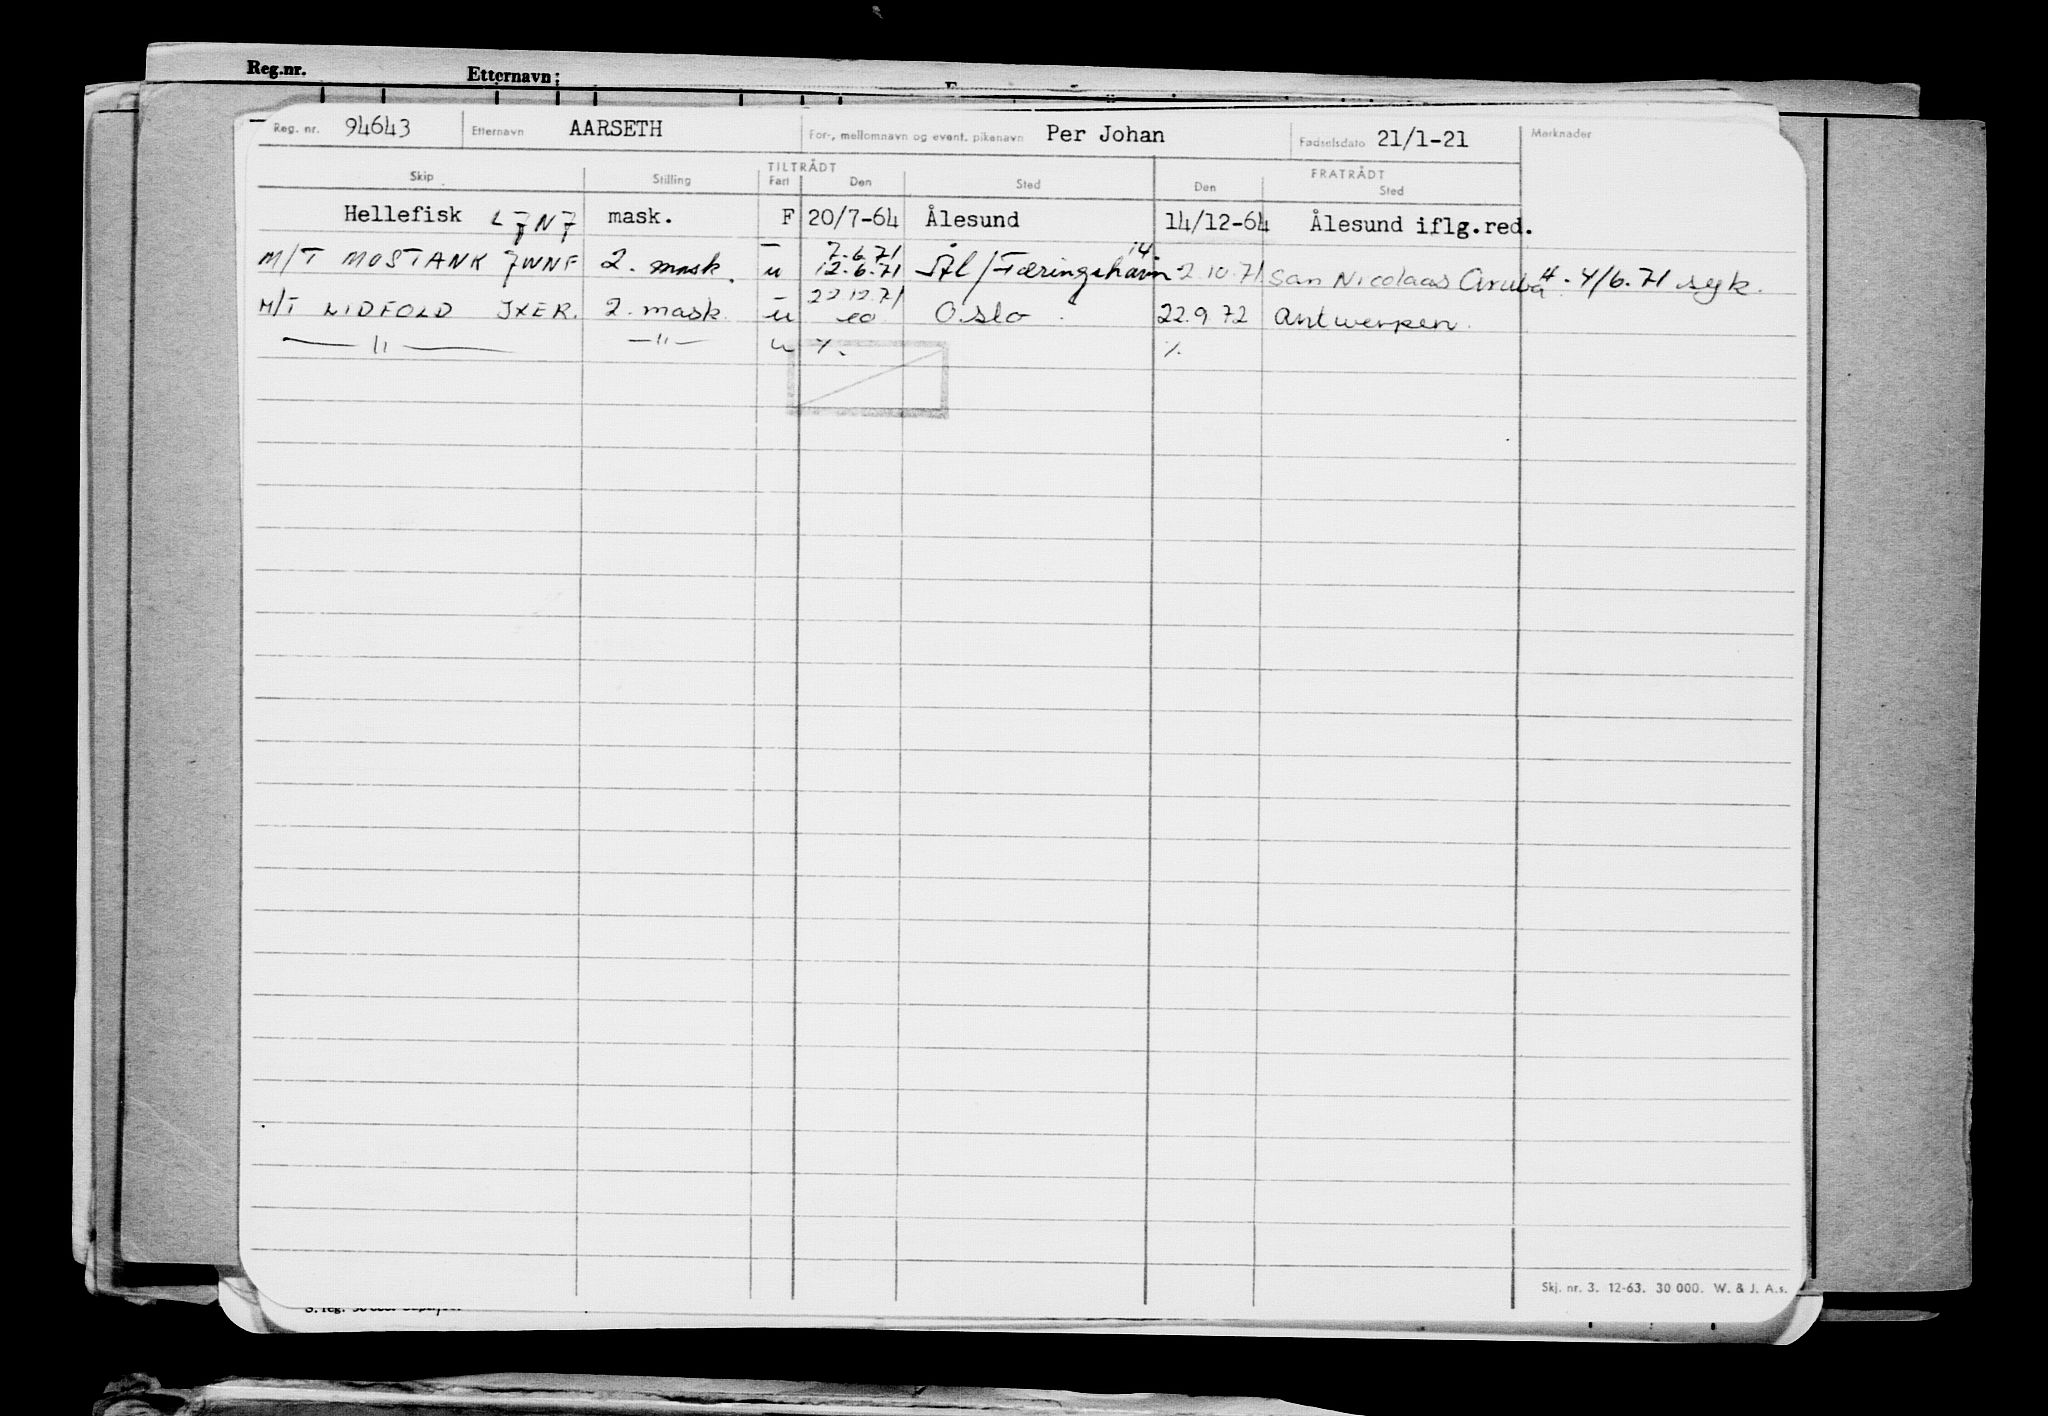 Reg.nr. Etternavn:
Reg. nr. 94643 Etternavn AARSETH For-, mellomnavn og event. pikenavn Per Johan Fødselsdato 21/1-21 Merknader
TILTRÅDT FRATRÅDT
Skip Stilling Fart Den Sted Den Sted
Hellefisk mask. F 20/7-64 Ålesund 14/12-64 Ålesund iflg.red.
7.6.71 14
M/T MOSTANK 2. mask. u 12.6.71 Ål/Færingehavn 2.10.71 San Nicolaas Aruba 4/6.71 syk.
22.12.71
M/T LIDFOLD JXER. 2. mask. u Oslo 22.9 72 Antwerpen.
— " — — " — u %. %
Skj. nr. 3. 12-63. 30 000. W. & J. A.s.